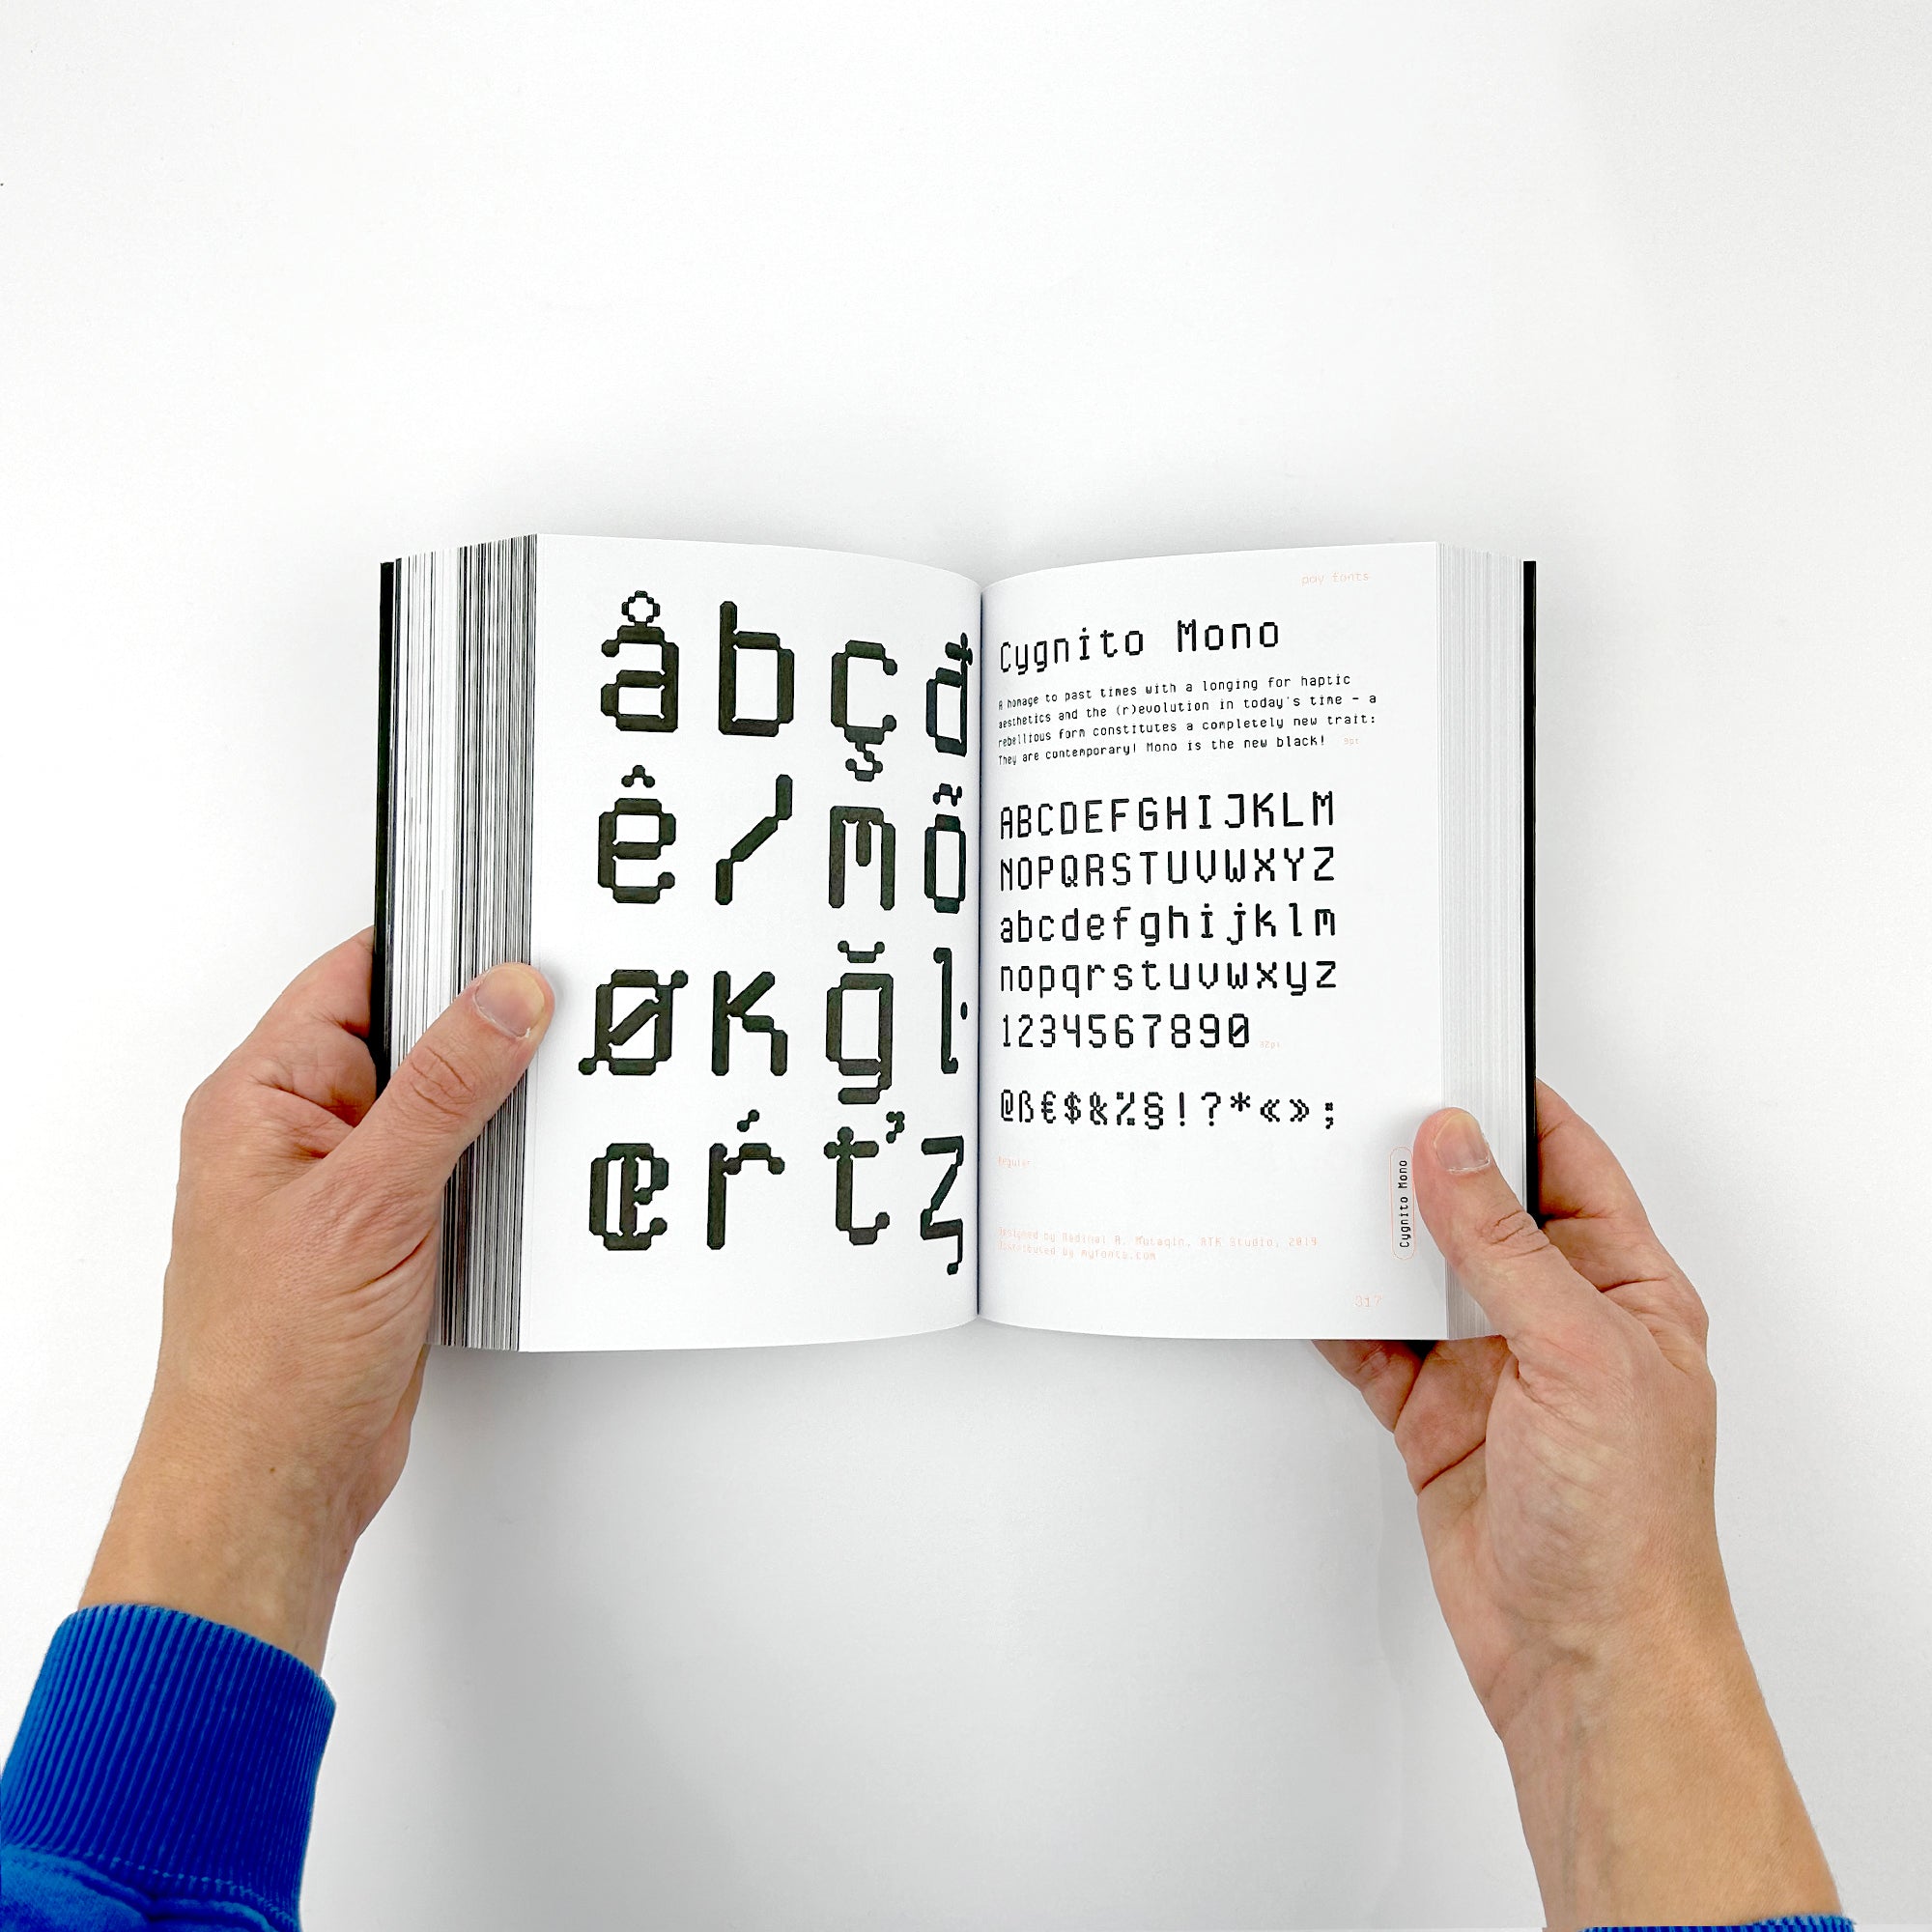 å b ç đ
ê / m õ
ø k ğ ŀ
œ ŕ ť ȥ
pay fonts
Cygnito Mono
A homage to past times with a longing for haptic
aesthetics and the (r)evolution in today's time – a
rebellious form constitutes a completely new trait:
They are contemporary! Mono is the new black! 9pt
ABCDEFGHIJKLM
NOPQRSTUVWXYZ
abcdefghijklm
nopqrstuvwxyz
1234567890 32pt
@ß€$&%§!?*«»;
Regular
Designed by Radinal R. Mutaqin, RTK Studio, 2019
Distributed by myfonts.com
Cygnito Mono
317